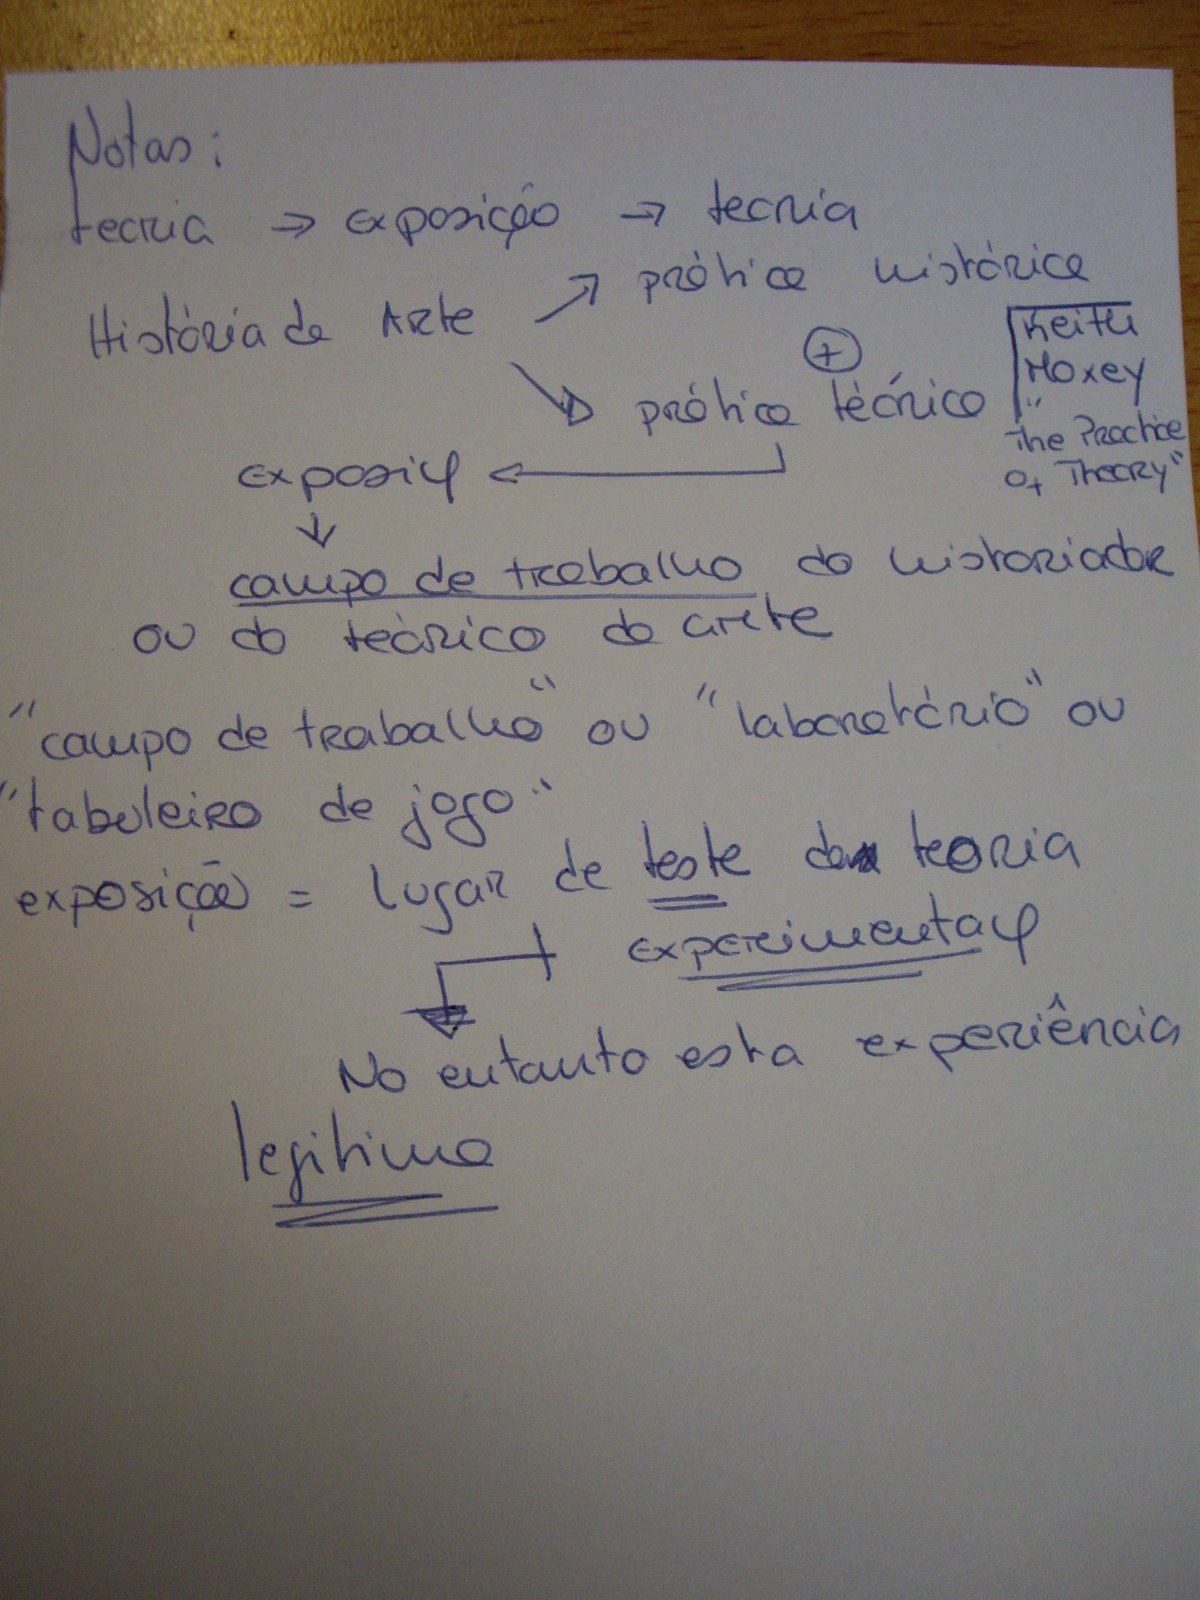 Notas:
teoria → exposição → teoria
História da Arte ↗ prática histórica
+
↘ prática teórica
Keith
Moxey
"The Practice
of Theory"
exposiç ←
↓
campo de trabalho do historiador
ou do teórico da arte
"campo de trabalho" ou "laboratório" ou
"tabuleiro de jogo"
exposição = lugar de teste da teoria
experimentaç
No entanto esta experiência
legitima